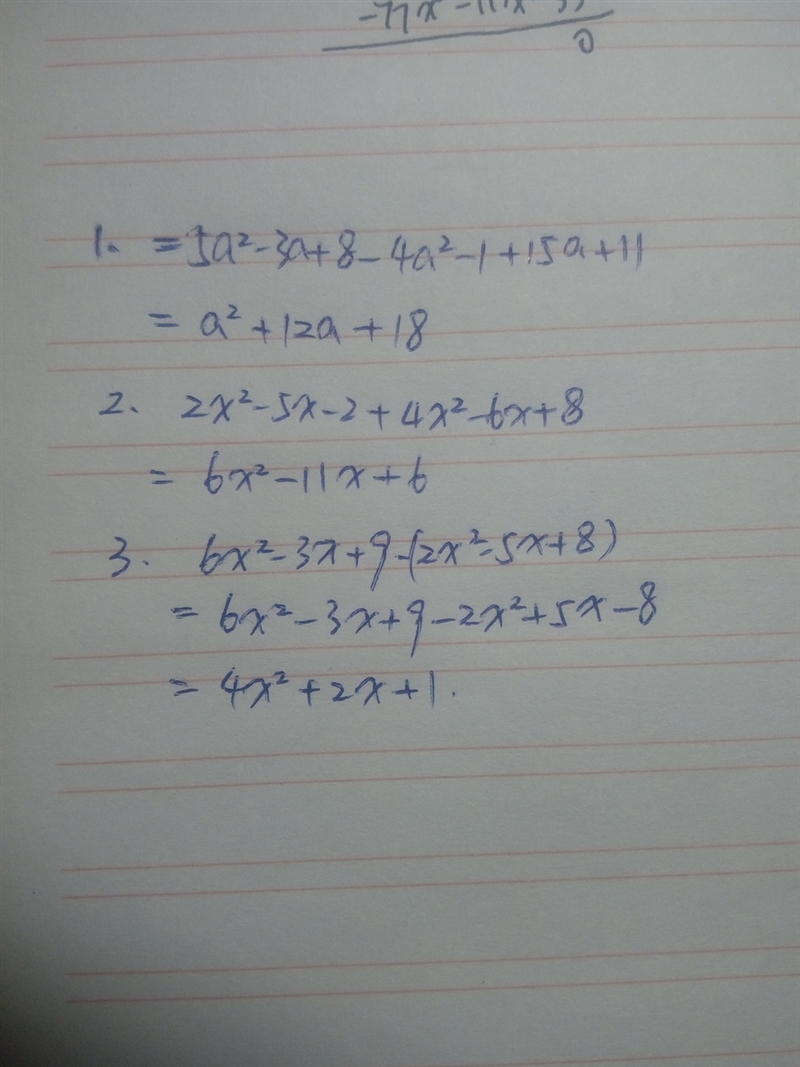 0
1. = 5a²-3a+8-4a²-1+15a+11
= a²+12a+18
2. 2x²-5x-2+4x²-6x+8
= 6x²-11x+6
3. 6x²-3x+9-(2x²-5x+8)
= 6x²-3x+9-2x²+5x-8
= 4x²+2x+1.